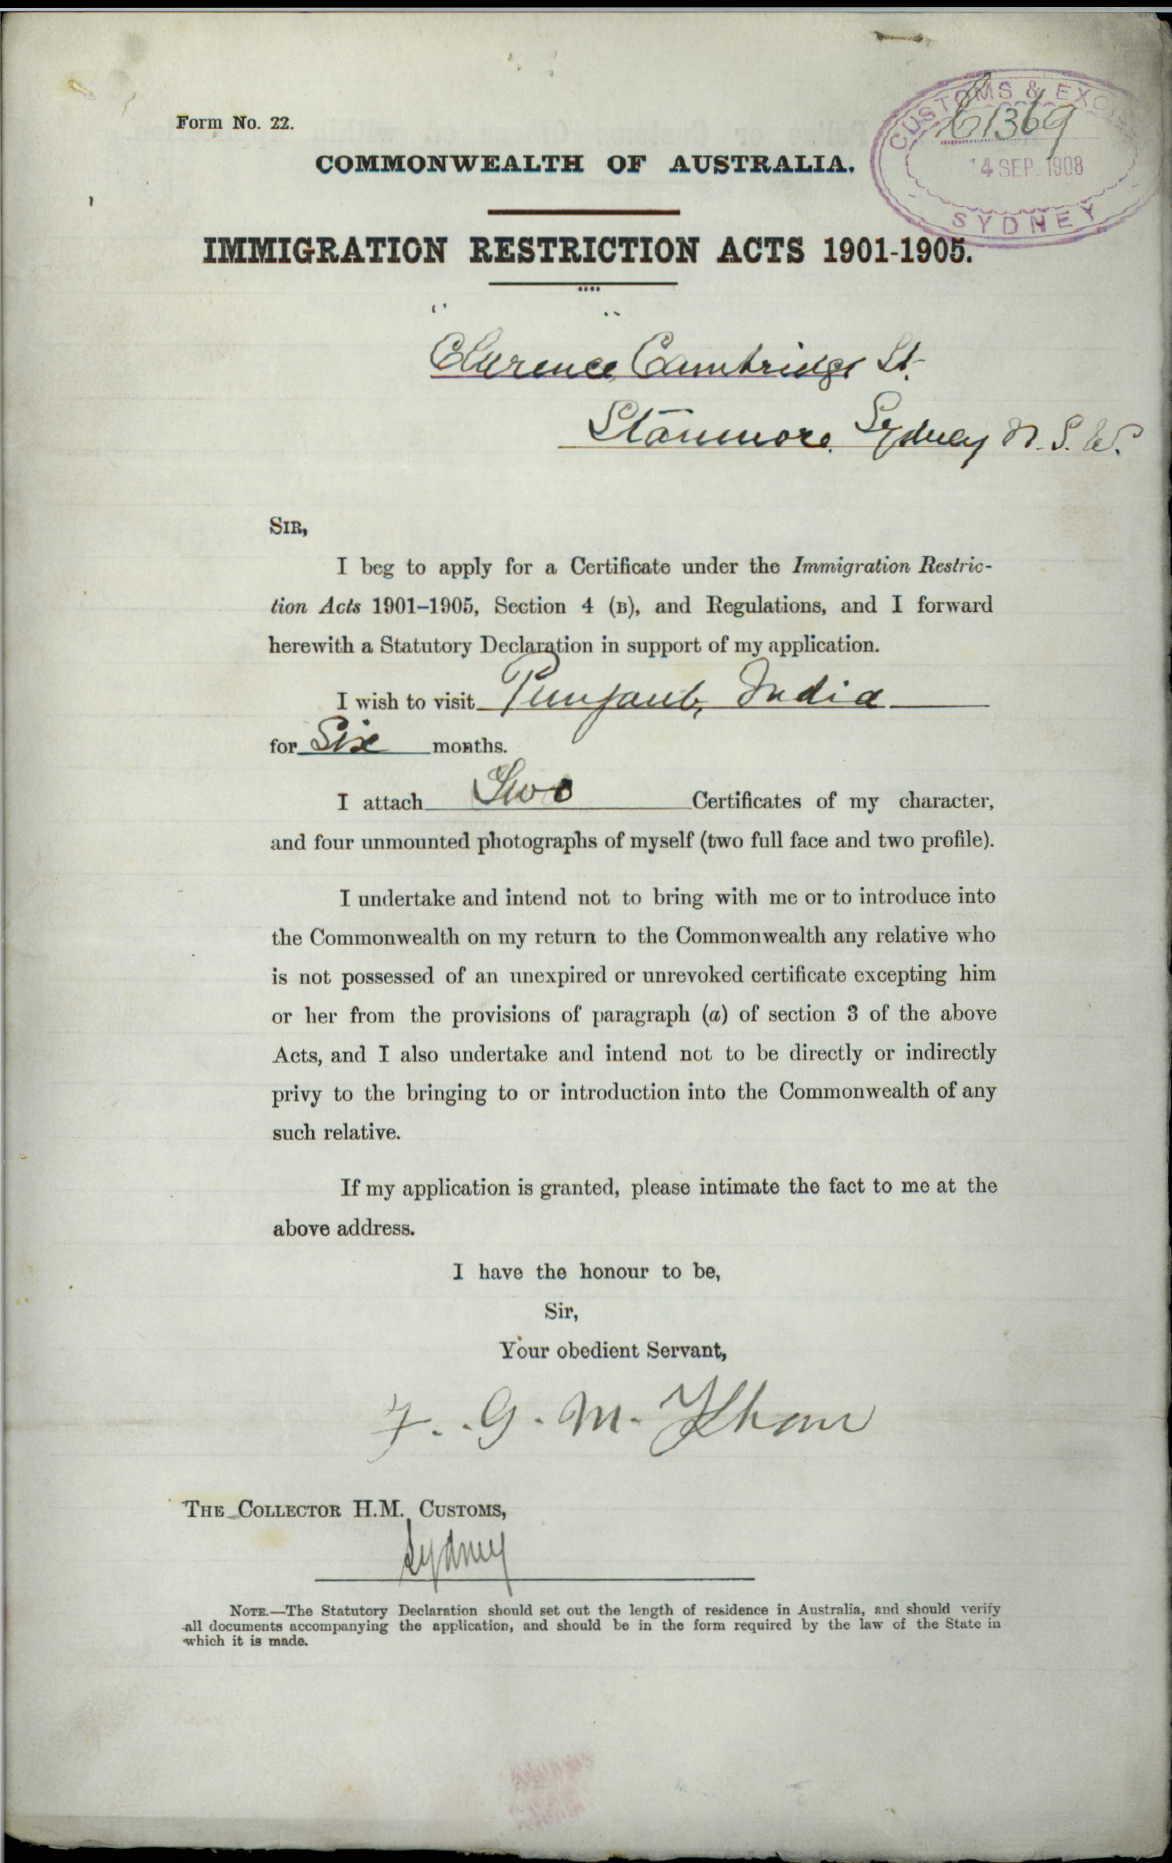 Form No. 22.
CUSTOMS & EXCISE
61369
14 SEP. 1908
SYDNEY
COMMONWEALTH OF AUSTRALIA.
IMMIGRATION RESTRICTION ACTS 1901-1905.
"Clarence" Cambridge St.
Stanmore, Sydney N.S.W.
SIR,
I beg to apply for a Certificate under the Immigration Restric-
tion Acts 1901–1905, Section 4 (B), and Regulations, and I forward
herewith a Statutory Declaration in support of my application.
I wish to visit Punjaub, India
for Six months.
I attach Two Certificates of my character,
and four unmounted photographs of myself (two full face and two profile).
I undertake and intend not to bring with me or to introduce into
the Commonwealth on my return to the Commonwealth any relative who
is not possessed of an unexpired or unrevoked certificate excepting him
or her from the provisions of paragraph (a) of section 3 of the above
Acts, and I also undertake and intend not to be directly or indirectly
privy to the bringing to or introduction into the Commonwealth of any
such relative.
If my application is granted, please intimate the fact to me at the
above address.
I have the honour to be,
Sir,
Your obedient Servant,
F. G. M. Khan
THE COLLECTOR H.M. CUSTOMS,
Sydney
NOTE.—The Statutory Declaration should set out the length of residence in Australia, and should verify
all documents accompanying the application, and should be in the form required by the law of the State in
which it is made.